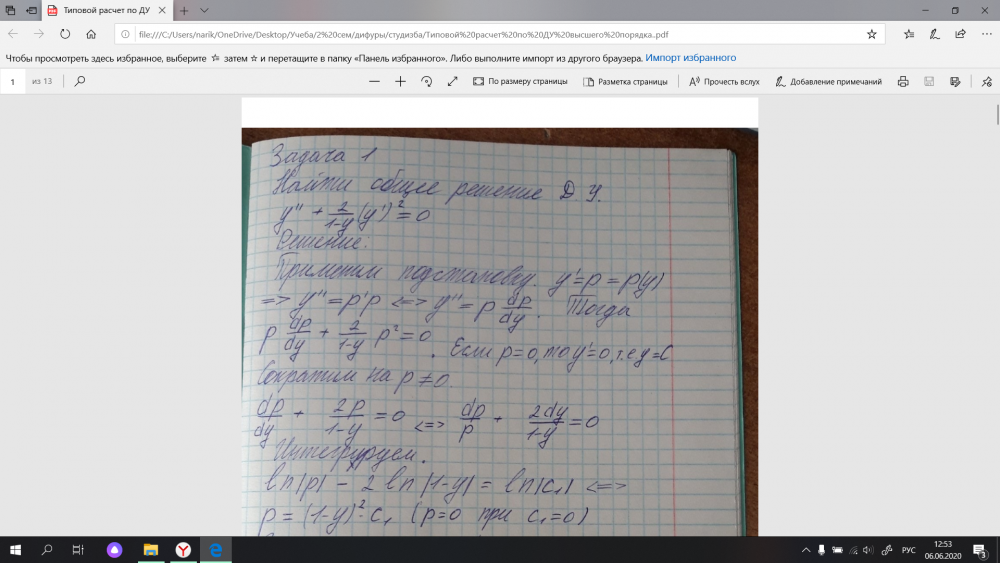 Типовой расчет по ДУ
file:///C:/Users/narik/OneDrive/Desktop/Учеба/2%20сем/дифуры/студизба/Типовой%20расчет%20по%20ДУ%20высшего%20порядка.pdf
Чтобы просмотреть здесь избранное, выберите затем ☆ и перетащите в папку «Панель избранного». Либо выполните импорт из другого браузера. Импорт избранного
1 из 13 По размеру страницы Разметка страницы Прочесть вслух Добавление примечаний
Задача 1
Найти общее решение Д.У.
y'' + 2/(1-y) (y')² = 0
Решение:
Применим подстановку. y' = p = p(y)
=> y'' = p'p <=> y'' = p dp/dy. Тогда
p dp/dy + 2/(1-y) p² = 0. Если p=0, то y'=0, т.е y=C
Сократим на p ≠ 0.
dp/dy + 2p/(1-y) = 0 <=> dp/p + 2dy/(1-y) = 0
Интегрируем.
ln|p| - 2 ln|1-y| = ln|C₁| <=>
p = (1-y)²·C₁ (p=0 при C₁=0)
РУС
12:53
06.06.2020
3